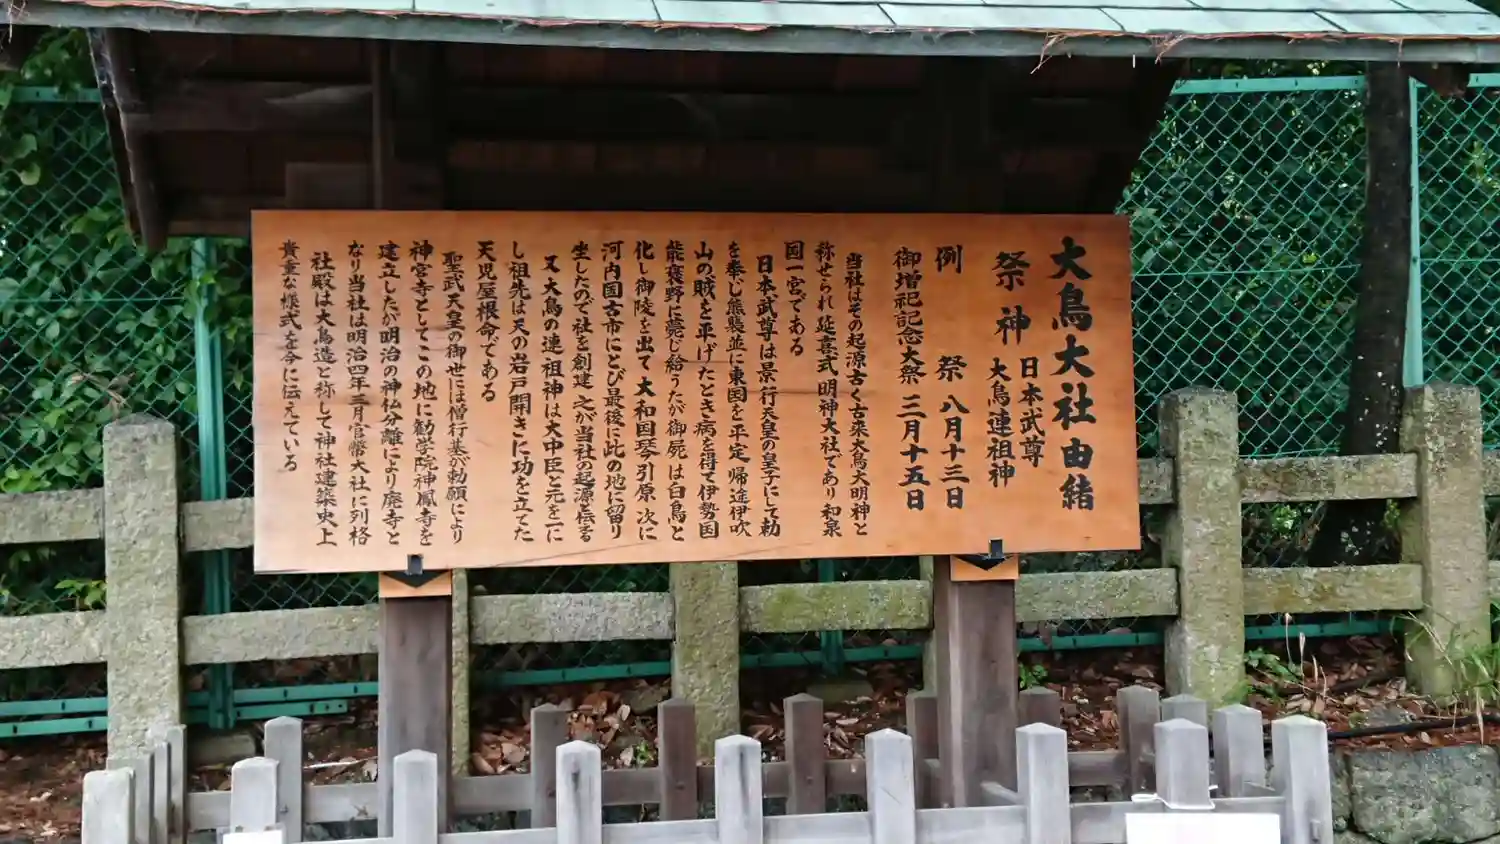 大鳥大社由緒
祭神 日本武尊
大鳥連祖神
例祭 八月十三日
御増祀記念大祭 三月十五日
当社はその起源古く古来大鳥大明神と
称せられ延喜式明神大社であり和泉
国一宮である
日本武尊は景行天皇の皇子にして勅
を奉じ熊襲並に東国を平定帰途伊吹
山の賊を平げたとき病を得て伊勢国
能褒野に薨じ給うたが御屍は白鳥と
化し御陵を出て大和国琴引原次に
河内国古市にとび最後に此の地に留り
坐したので社を創建之が当社の起源と伝える
又大鳥の連祖神は大中臣と元を一に
し祖先は天の岩戸開きに功を立てた
天児屋根命である
聖武天皇の御世には僧行基が勅願により
神宮寺としてこの地に勧学院神鳳寺を
建立したが明治の神仏分離により廃寺と
なり当社は明治四年三月官幣大社に列格
社殿は大鳥造と称して神社建築史上
貴重な様式を今に伝えている